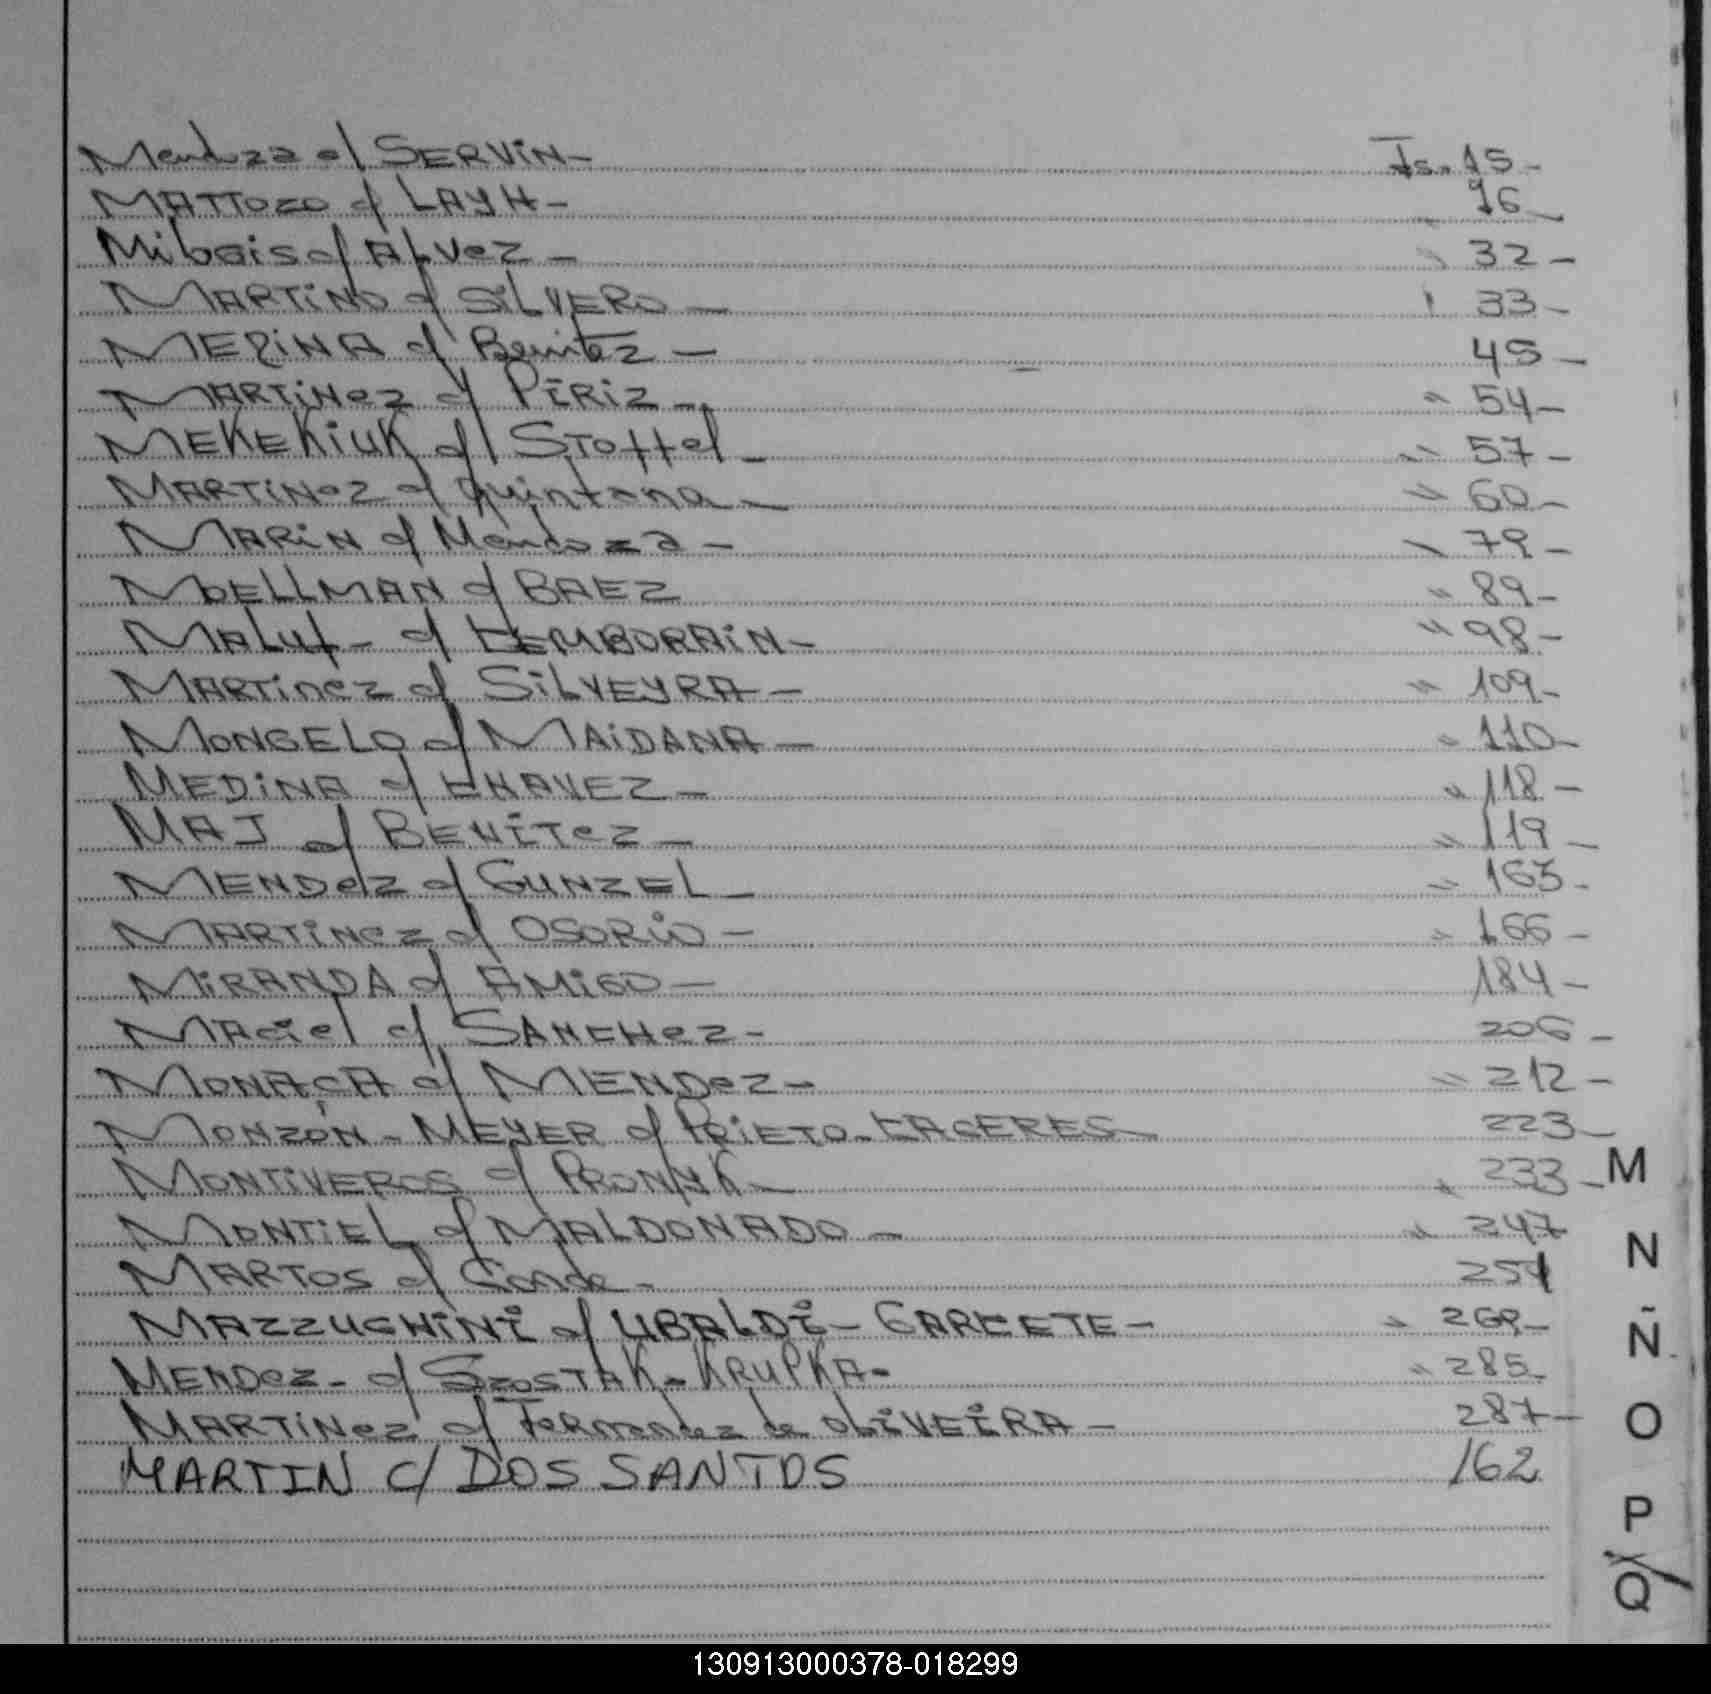 Mendoza c/ SERVIN- Fs. 15-
MATTOZO c/ LAYH- 16-
Mibais c/ ALVEZ- " 32-
MARTINO c/ SILVERO- " 33-
MERINA c/ Benitez- 45-
MARTINEZ c/ PIRIZ- " 54-
MEKEKIUK c/ Stoffel- " 57-
MARTINEZ c/ Quintana- " 60-
MARIN c/ Mendoza- " 79-
MOELLMAN c/ BAEZ " 89-
MALUF- c/ CEMBORAIN- " 98-
MARTINEZ c/ SILVEYRA- " 109-
MONGELO c/ MAIDANA- " 110-
MEDINA c/ CHAVEZ- " 118-
MAJ c/ BENITEZ- " 119-
MENDEZ c/ GUNZEL- " 163-
MARTINEZ c/ OSORIO- " 166-
MIRANDA c/ AMIGO- 184-
MACIEL c/ SANCHEZ- 206-
MONAÇA c/ MENDEZ- " 212-
MONZÓN- MEYER c/ PRIETO-CACERES- 223-
MONTIVEROS c/ PRONYK- " 233-
MONTIEL c/ MALDONADO- " 247
MARTOS c/ Conde- 251
MAZZUCHINI c/ UBALDI- GARCETE- " 269-
MENDEZ- c/ SZOSTAK-KRUPKA- " 285-
MARTINEZ c/ Fernandez de OLIVEIRA- 287-
MARTIN C/ DOS SANTOS 162
M
N
Ñ
O
P
Q
130913000378-018299